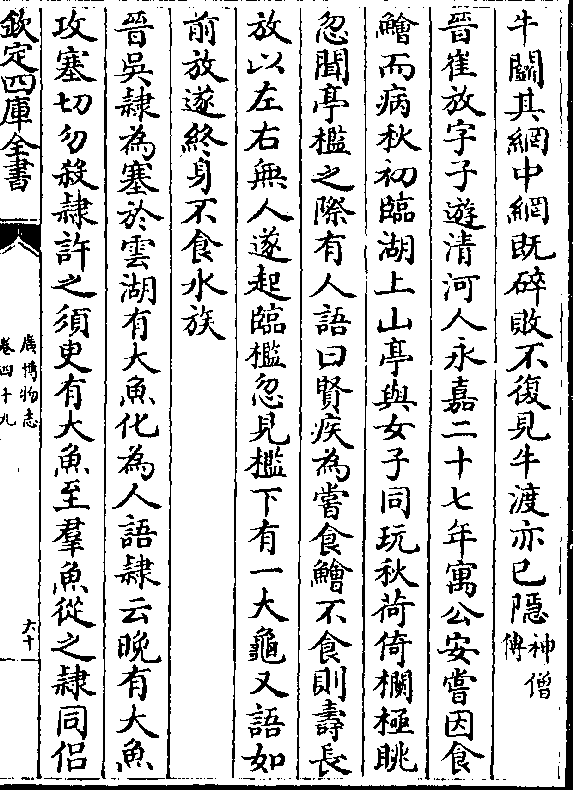 牛鬬其網中網既碎敗不復見牛渡亦已隱神僧傳
晉崔放字子遊清河人永嘉二十七年寓公安嘗因食
鱠而病秋初臨湖上山亭與女子同玩秋荷倚欄極眺
忽聞亭檻之際有人語曰賢疾為嘗食鱠不食則壽長
放以左右無人遂起臨檻忽見檻下有一大龜又語如
前放遂終身不食水族
晉吳隸為塞於雲湖有大魚化為人語隸云晚有大魚
攻塞切勿殺隸許之須㬰有大魚至羣魚從之隸同侶
欽定四庫全書
廣博物志
卷四十九
六十